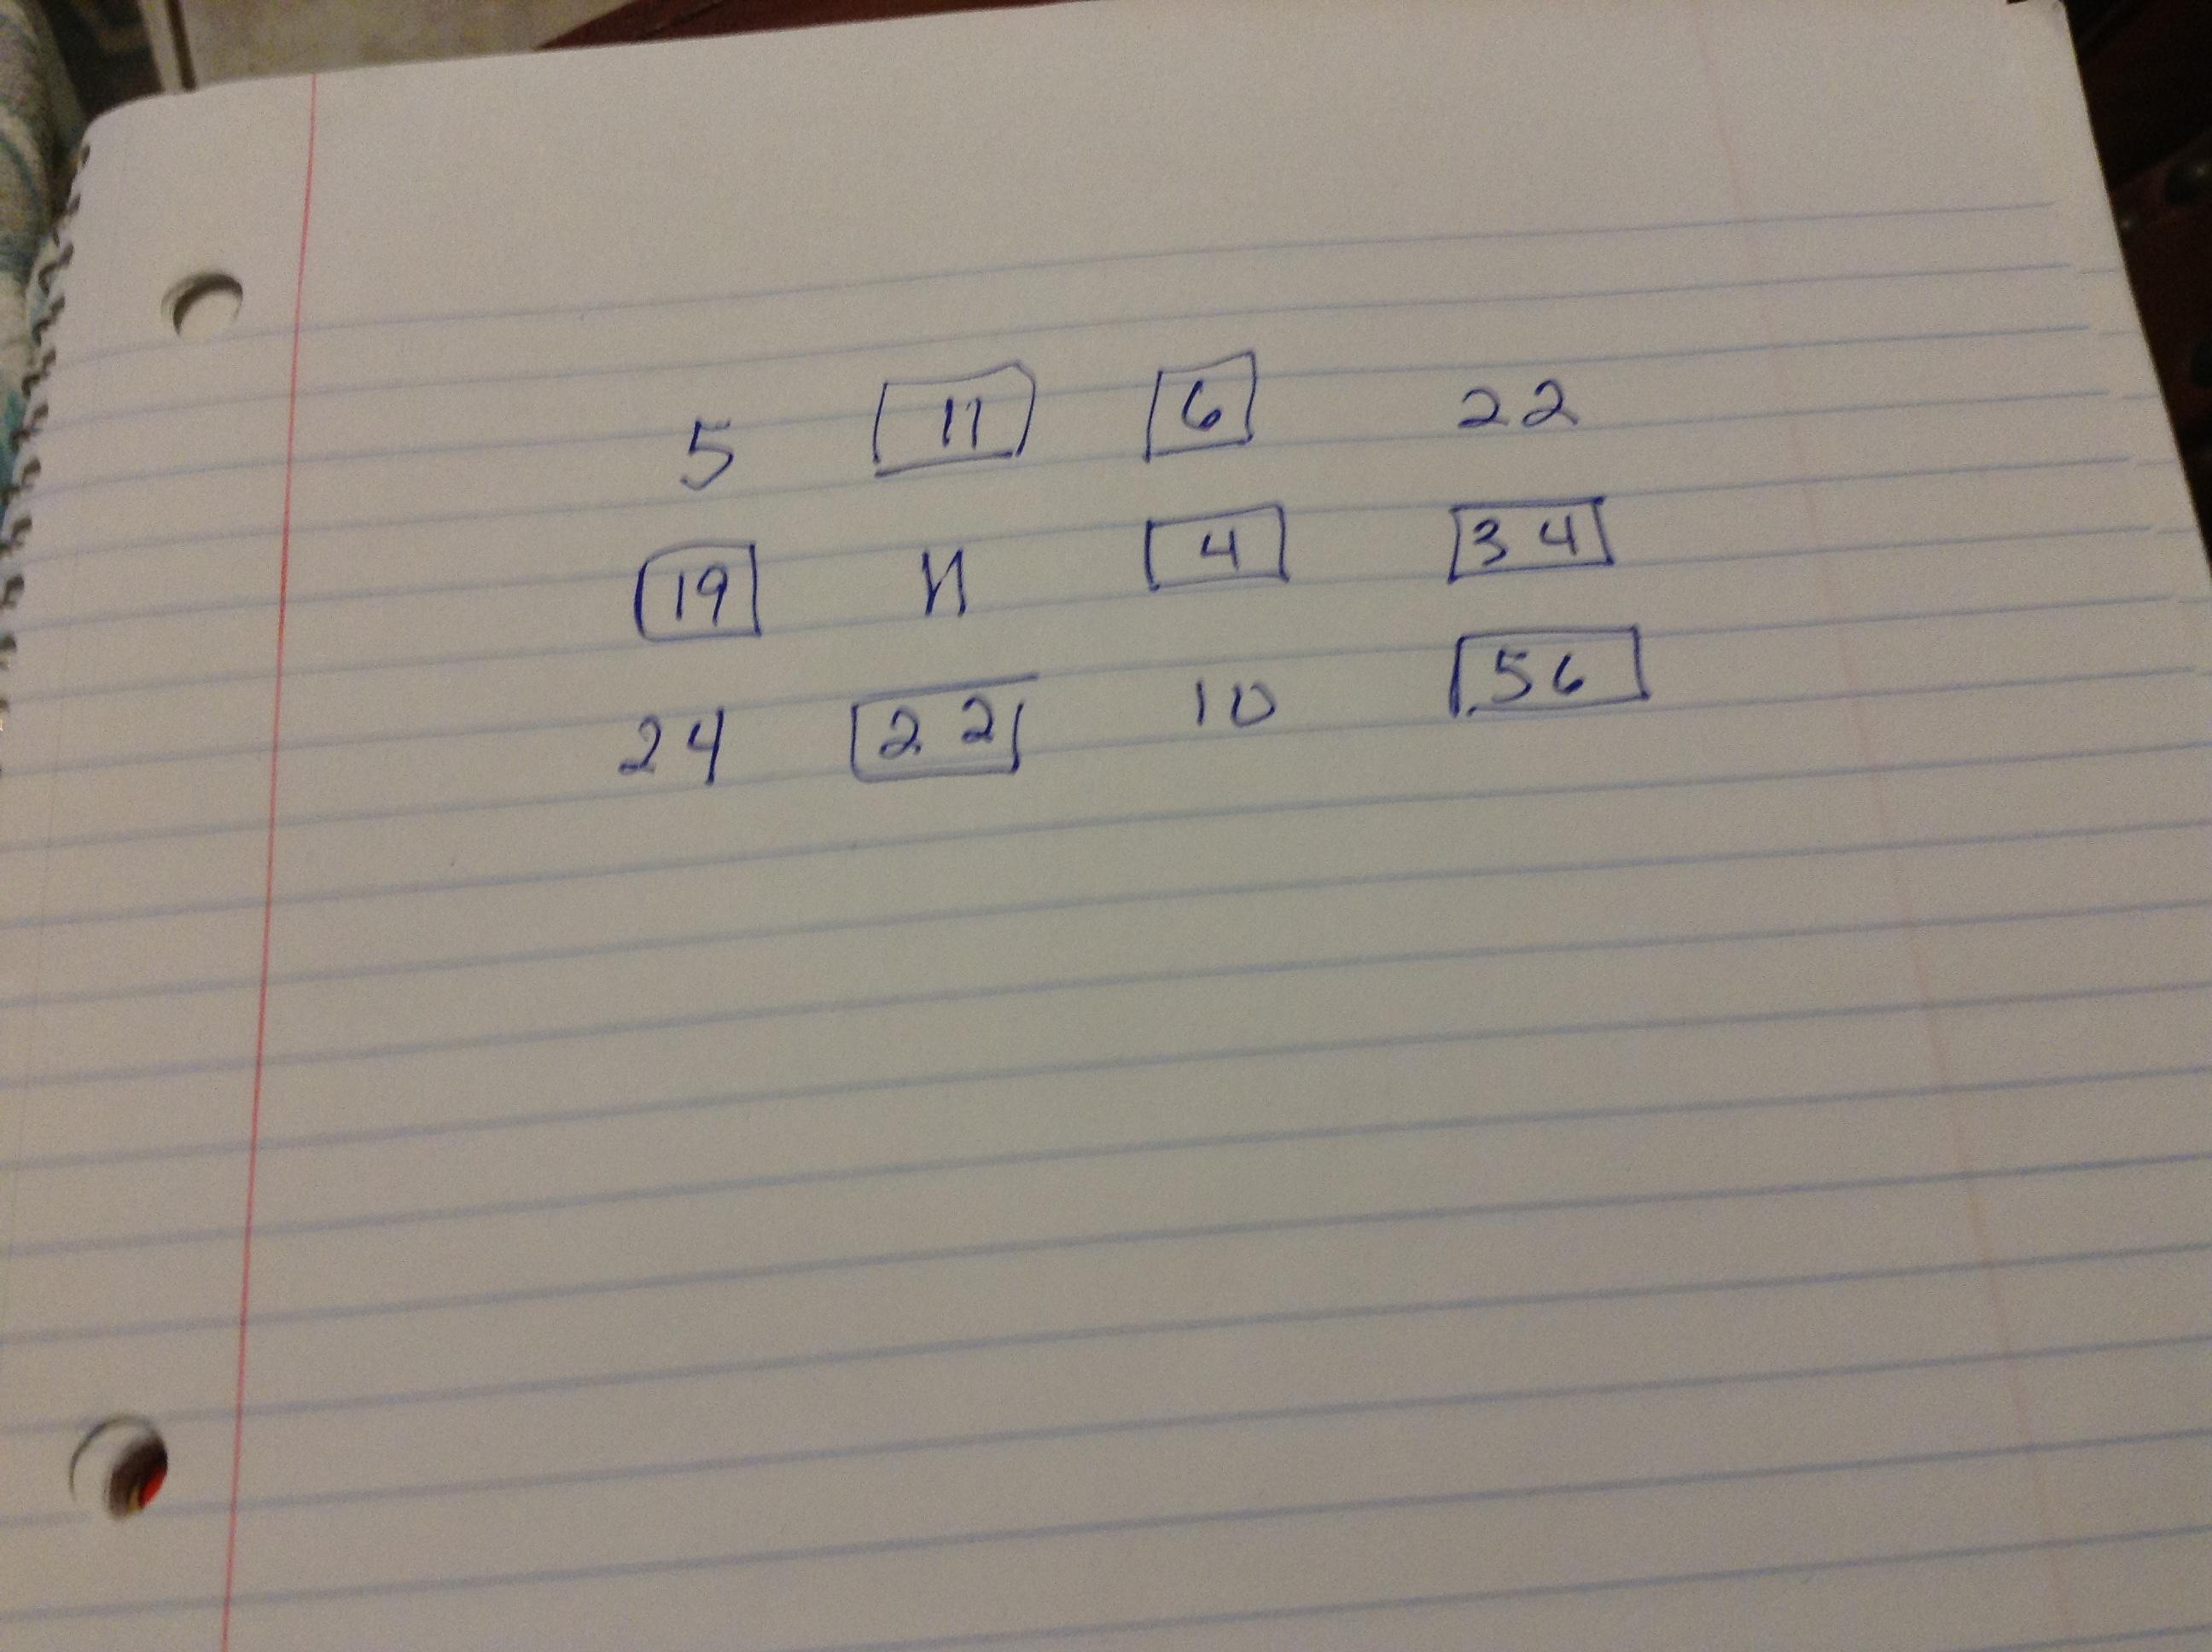 5 11 6 22
19 11 4 34
24 22 10 56